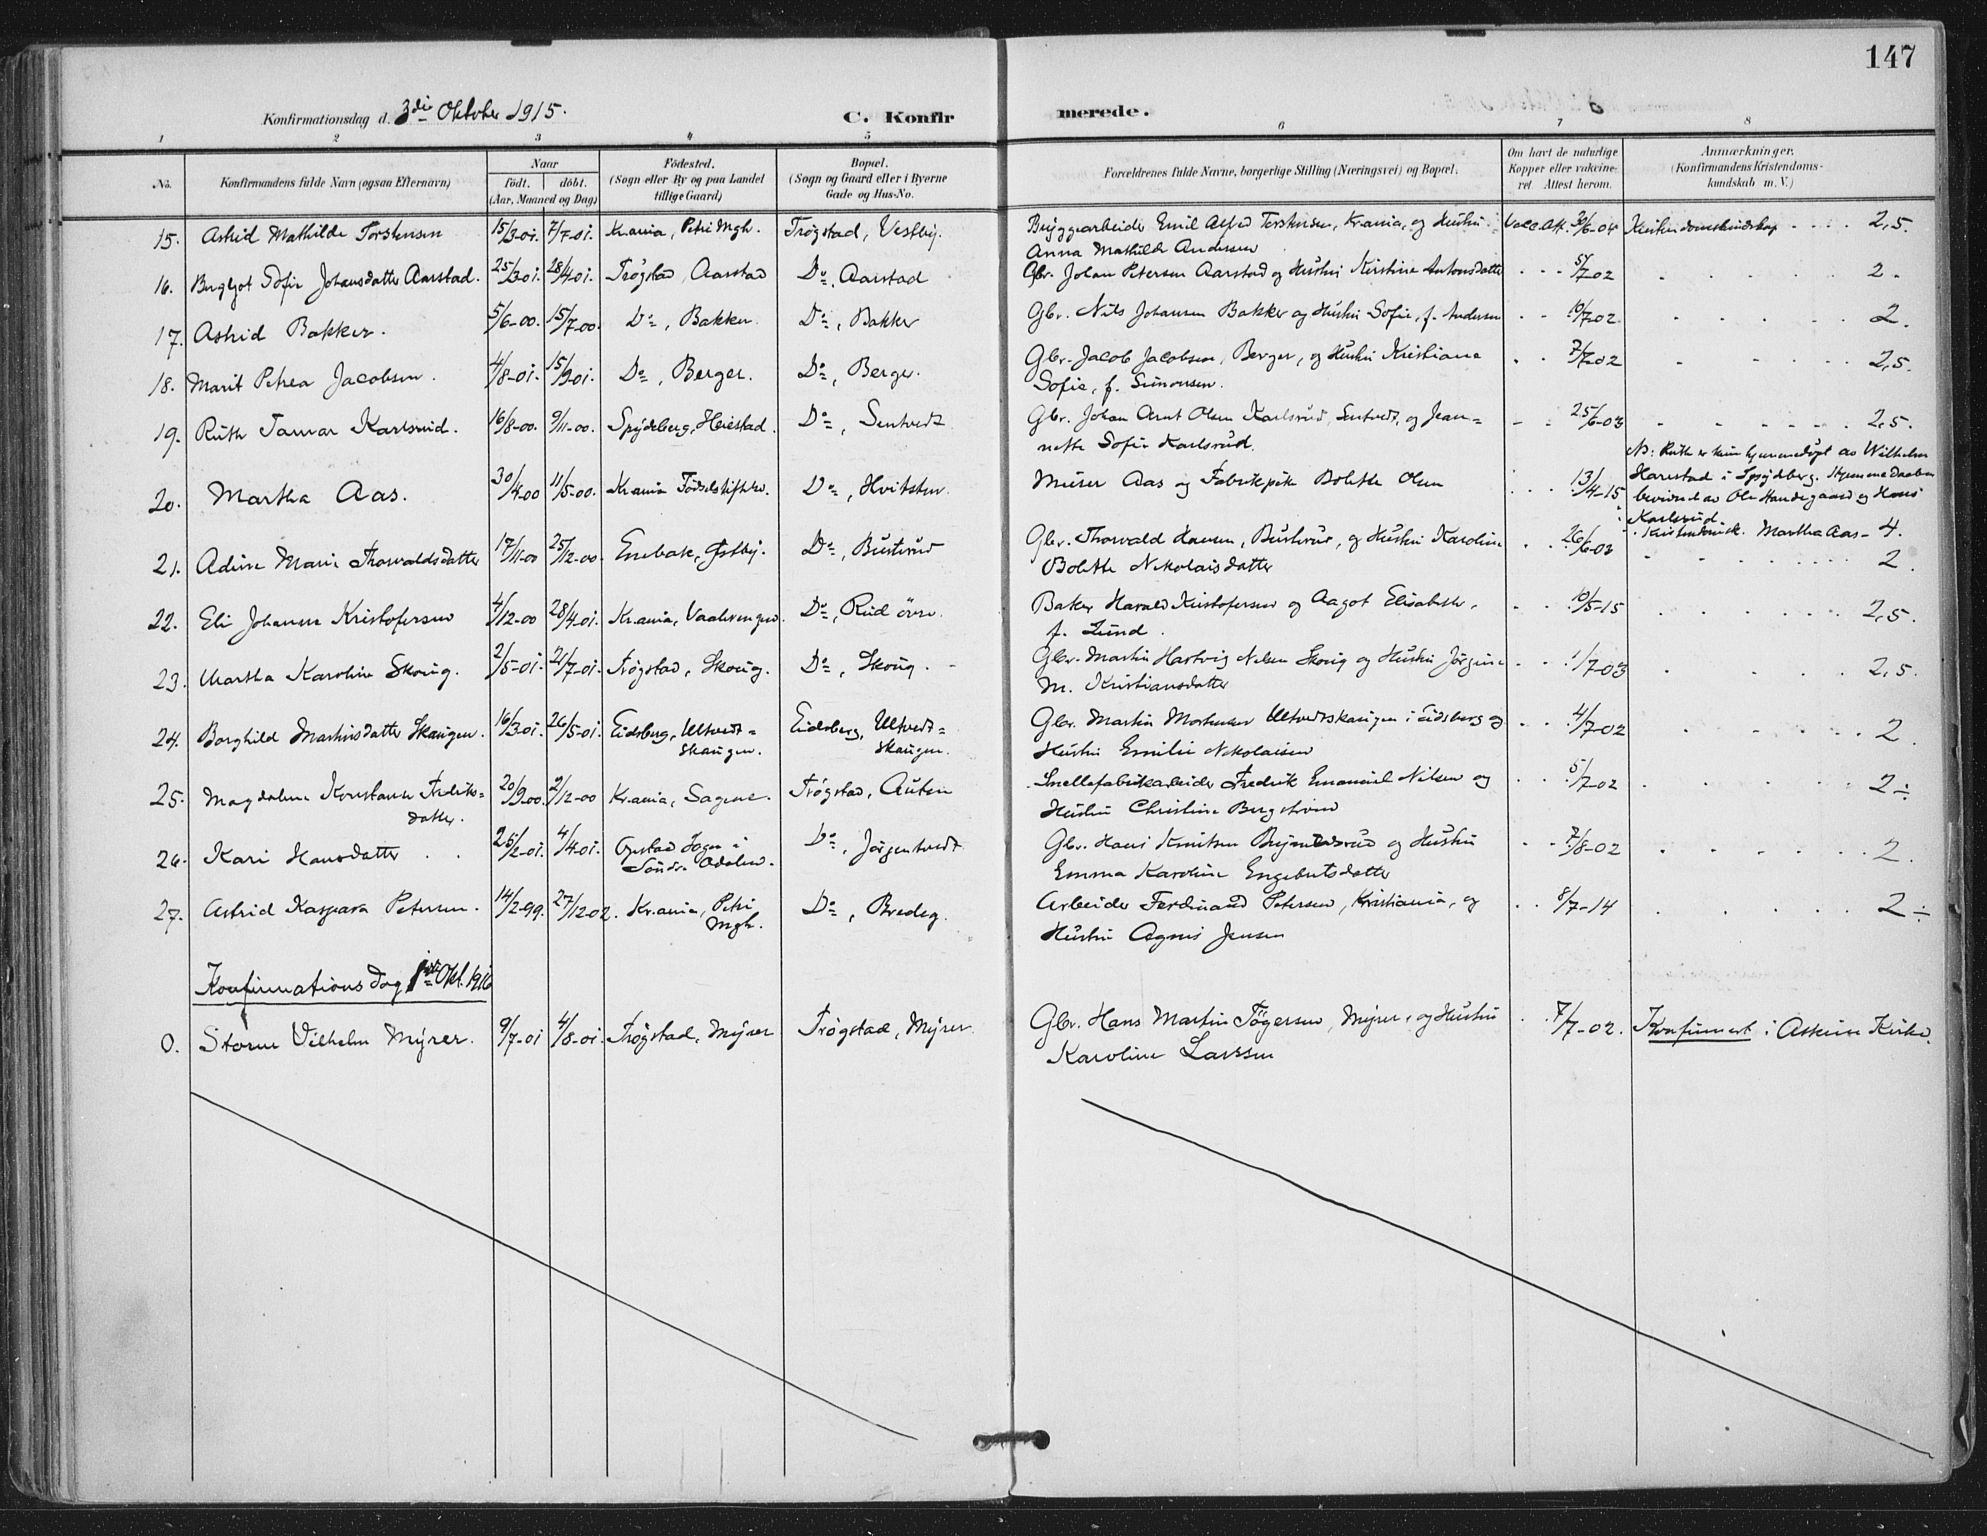 147
Konfirmationsdag d. 3die Oktober 1915.
C. Konfirmerede.
1 2 3 4 5 6 7 8
No.
Konfirmandens fulde Navn (ogsaa Efternavn)
Naar født. døbt. (Aar, Maaned og Dag)
Fødested. (Sogn eller By og paa Landet tillige Gaard)
Bopæl. (Sogn og Gaard eller i Byerne Gade og Hus-No.
Forældrenes fulde Navne, borgerlige Stilling (Næringsvei) og Bopæl.
Om havt de naturlige Kopper eller vakcineret. Attest herom.
Anmærkninger. (Konfirmandens Kristendomskundskab m. V.)
15. Astrid Mathilde Torstensen 15/3-01. 7/7-01. Kr.ania, Petri Mgh. Trøgstad, Vestby. Bryggearbeider Emil Alfred Torstensen, Kr.ania, og Hustru Vacc. Att. 30/6-04 Kristendomskundskap 2,5.
Anna Mathilde Andersen
16. Bergljot Sofie Johansdatter Aarstad. 25/3-01. 28/4-01. Trøgstad, Aarstad Do, Aarstad Gbr. Johan Petersen Aarstad og Hustru Kirstine Antonsdatter 5/7-02 2.
17. Astrid Bakker. 5/6-00. 15/7-00. Do, Bakker. Do, Bakker Gbr. Nils Johansen Bakker og Hustru Sofie, f. Andersen 10/7-02. 2.
18. Marit Petrea Jacobsen. 4/8-01. 15/9-01. Do, Berger. Do, Berger. Gbr. Jacob Jacobsen, Berger, og Hustru Kristiane 7/7-02 2,5.
Sofie, f. Simonsen.
19. Ruth Tamar Karlsrud. 16/8-00. 9/11-00. Spydeberg, Heiestad. Do, Sentvedt Gbr. Johan Arnt Olsen Karlsrud, Sentvedt, og Jean=
nette Sofie Karlsrud. 25/6-03 2,5.
NB: Ruth er kun hjemmedøpt av Wilhelm
Harestad i Spydeberg. Hjemmedaaben
bevidnet av Ole Handegaard og Hans
Karlsrud.
20. Martha Aas. 30/4-00 11/5-00. Kr.ania Fødselsstift. Do, Hvitsten. Murer Aas og Fabrikpike Bolette Olsen 13/4-15
Kristendomsk. Martha Aas - 4.
21. Adine Marie Thorvaldsdatter 17/11-00 25/12-00. Enebak, Østby. Do, Busterud Gbr. Thorvald Hansen, Busterud, og Hustru Karoline 26/6-03 2.
Bolette Nikolaisdatter
22. Eli Johanne Kristofersen 4/12-00 28/4-01. Kr.ania, Vaalerengen. Do, Rud øvre. Baker Harald Kristofersen og Aagot Elisabeth, 10/5-15 2,5.
f. Lund.
23. Martha Karoline Skoug. 2/5-01. 21/7-01. Trøgstad, Skoug. Do, Skoug. Gbr. Martin Hartvig Nilsen Skoug og Hustru Jørgine 1/7-03 2,5.
M. Kristiansdatter
24. Borghild Martinsdatter Skaugen. 16/3-01. 26/5-01. Eidsberg, Ultvedt= Eidsberg, Ultvedt= Gbr. Martin Mortensen Ultvedtskaugen i Eidsberg og 4/7-02 2.
skaugen. skaugen. Hustru Emilie Nikolaisen
25. Magdalene Konstanse Fredriks= 20/9-00. 2/12-00 Kr.ania, Sagene. Trøgstad, Auten Snellefabrikarbeider Fredrik Emanuel Nilsen og 5/7-02 2÷
datter. Hustru Christine Bergstrøm
26. Kari Hansdatter 25/2-01. 4/4-01. Opstad Sogn i Do, Jørgentvedt Gbr. Hans Knutsen og Hustru 7/8-02 2.
Søndr. Odalen. Emma Karoline Engebretsdatter
27. Astrid Kaspara Petersen. 14/2-99. 27/12-02. Kr.ania, Petri Do, Bredsg. Arbeider Ferdinand Petersen, Kristiania, og 8/7-14 2÷
Mgh. Hustru Agnes Jensen
Konfirmations Dag 1ste Okt. 1916
0. Storm Vilhelm Myrer. 9/7-01 4/8-01. Trøgstad, Myrer Trøgstad, Myrer. Gbr. Hans Martin Tøgersen, Myrer, og Hustru 7/7-02. Konfirmert i Askim Kirke.
Karoline Larssen